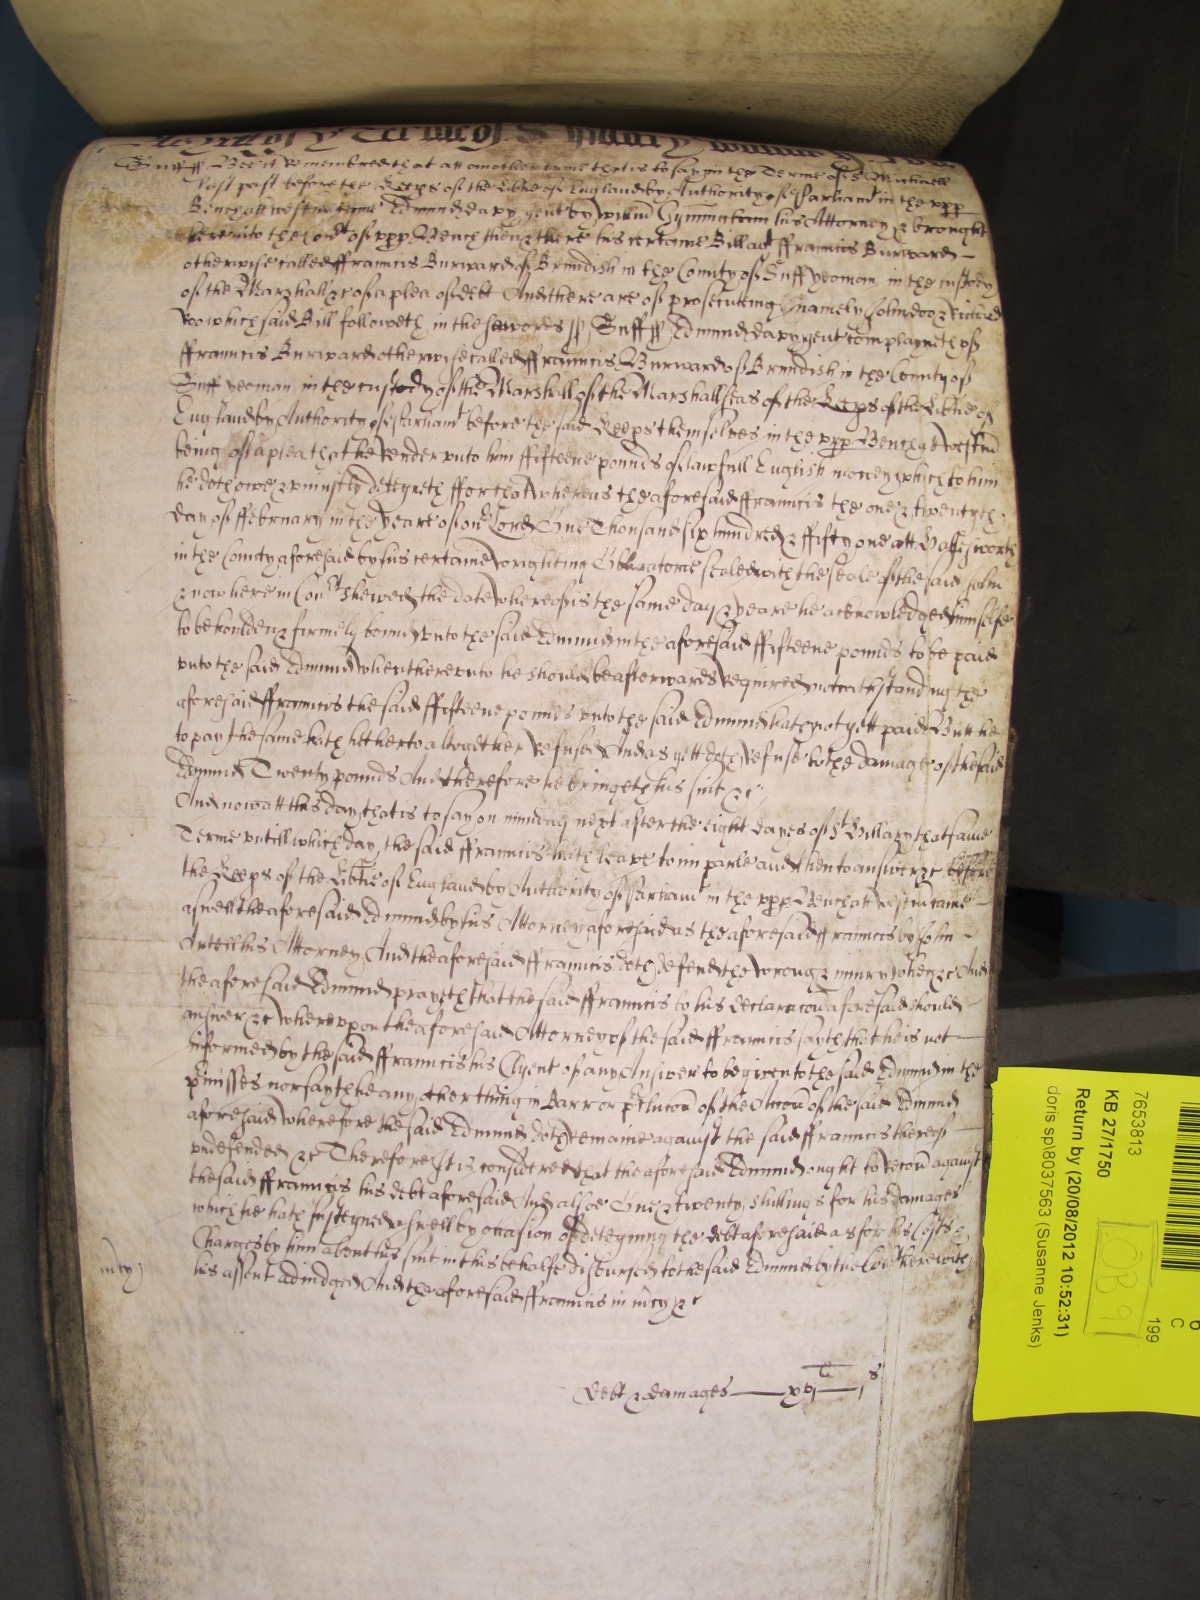 Suff ss Bee it remembred that att another tyme that is to say in the Terme of S Michaell
last past before the Keeps of the Libtie of England by Authority of Parliamt in the vpp
Bench att westm came Edmund davy gent by Willm his Attorney & brought
here into the Court of vpp Bench then & there his certaine Bill agt ffrancis Burward
otherwise called ffrancis Burward of Brundish in the County of Suff yeoman in the custody
of the Marshall &c of a plea of debt And there are of prosecuting namely John doo & Richard
roo which said Bill followeth in these words ss Suff ss Edmund davy gent complayneth of
ffrancis Burward otherwise called ffrancis Burward of Brundish in the County of
Suff yeoman in the custody of the Marshall of the Marshallseas of the Keeps of the Libtie of
England by Authority of Parliamt before the said Keeps themselves in the vpp Bench at westm
being of a plea that he render unto him ffifteene pounds of lawfull English money which to him
he doth owe & uniustly deteyneth ffor that whereas the aforesaid ffrancis the one & twentyth
day of ffebruary in the yeare of our Lord One Thousand six hundred & ffifty one att
in the County aforesaid by his certaine wrighting Obligatorie sealed with the seale of the said John
& now here in Court shewed the date whereof is the same day & yeare he acknowledged himselfe
to be houlden & firmely bound unto the said Edmund in the aforesaid ffifteene pounds to be paid
unto the said Edmund when thereunto he should be afterwards required notwithstanding the
aforesaid ffrancis the said ffifteene pounds unto the said Edmund hath not yett paid Butt he
to pay the same hath hitherto altogether refused And as yett doth refuse to the damage of the said
Edmund Twenty pounds And therefore he bringeth his suit &c
And now att this day that is to say on munday next after the eight dayes of St Hillary that same
Terme untill which day the said ffrancis hath leave to imparle and then to answer &c before
the Keeps of the Libtie of England by Authority of Parliamt in the vpp Bench att westm came
aswell the aforesaid Edmund by his Attorney aforesaid as the aforesaid ffrancis by John
his Attorney And the aforesaid ffrancis doth defend the wrong & iniury when &c And
the aforesaid Edmund prayeth that the said ffrancis to his declaracon aforesaid should
answer &c whereupon the aforesaid Attorney of the said ffrancis sayth that he is not
informed by the said ffrancis his Clyent of any Answer to be given to the said Edmund in the
pmisses nor sayth he any other thing in Barr or of the Accon of the said Edmund
aforesaid wherefore the said Edmund doth remaine against the said ffrancis thereof
undefended &c Therefore It is considered that the aforesaid Edmund ought to recov against
the said ffrancis his debt aforesaid And alsoe One & twenty shillings for his damages
which he hath susteyned aswell by occasion of deteyning the debt aforesaid as for his Costs &
Charges by him about his suit in this behalfe disbursed to the said Edmund by the Court here with
his assent adiudged And the aforesaid ffrancis in mcy &c
mcy
debt & damages xvi l i s
7653813
KB 27/1750
Return by (20/08/2012 10:52:31)
doris sp\8037563 (Susanne Jenks)
199
C
6